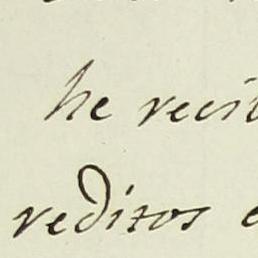 he recit
reditos